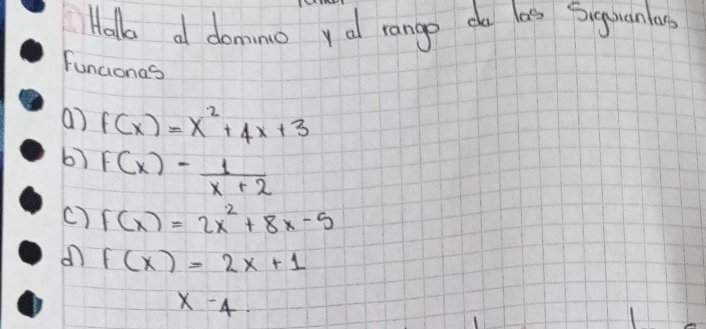 Halla el dominio y el rango de las Siguientes
Funciones
a) f(x) = x² + 4x + 3
b) f(x) = 1/(x + 2)
c) f(x) = 2x² + 8x - 5
d) f(x) = 2x + 1
x - 4.